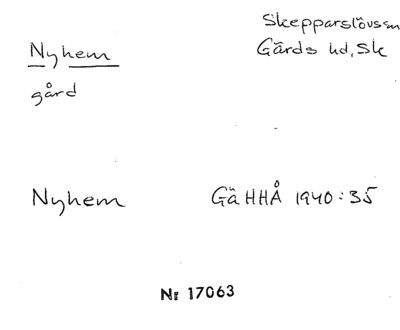 Skepparslövs sn
Nyhem Gärds hd, Sk
gård
Nyhem GäHHÅ 1940:35
Nr 17063